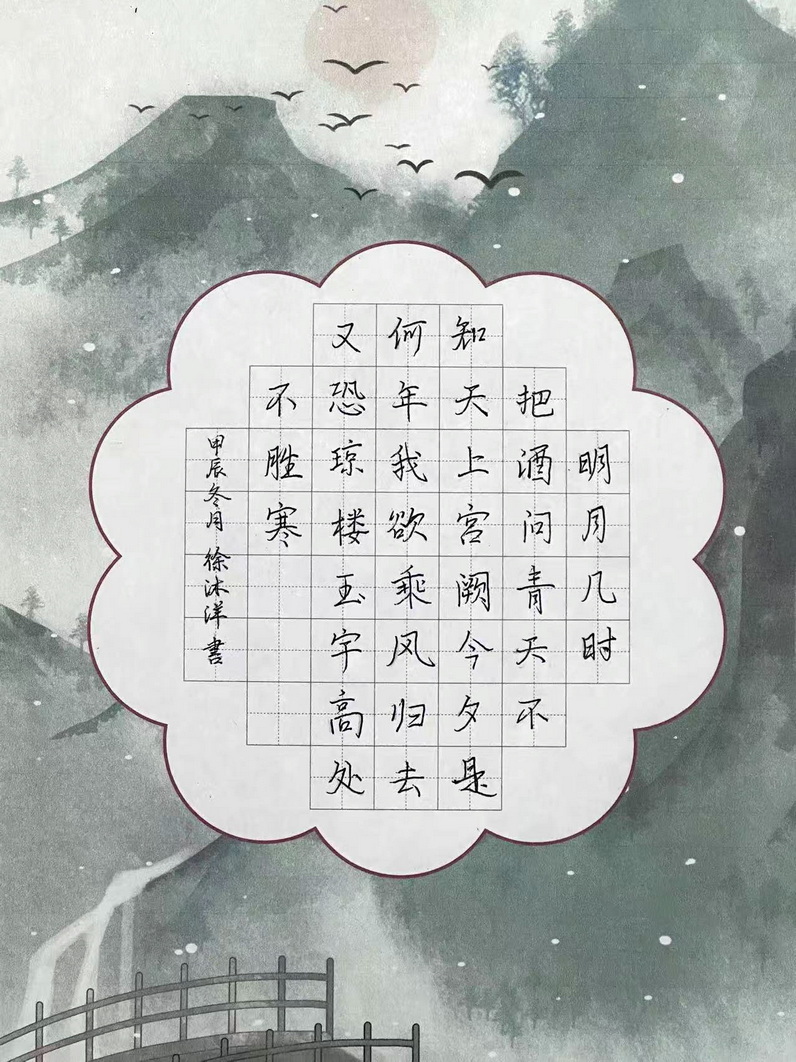 明月几时
把酒问青天不
知天上宫阙今夕是
何年我欲乘风归去
又恐琼楼玉宇高处
不胜寒
甲辰冬月徐沐洋書